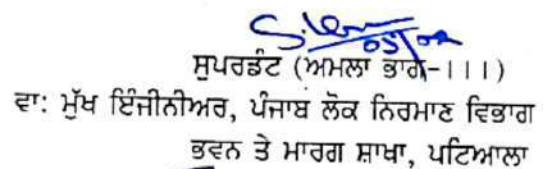 05/02
ਸੁਪਰਡੰਟ (ਅਮਲਾ ਭਾਗ-III)
ਵਾ: ਮੁੱਖ ਇੰਜੀਨੀਅਰ, ਪੰਜਾਬ ਲੋਕ ਨਿਰਮਾਣ ਵਿਭਾਗ
ਭਵਨ ਤੇ ਮਾਰਗ ਸ਼ਾਖਾ, ਪਟਿਆਲਾ